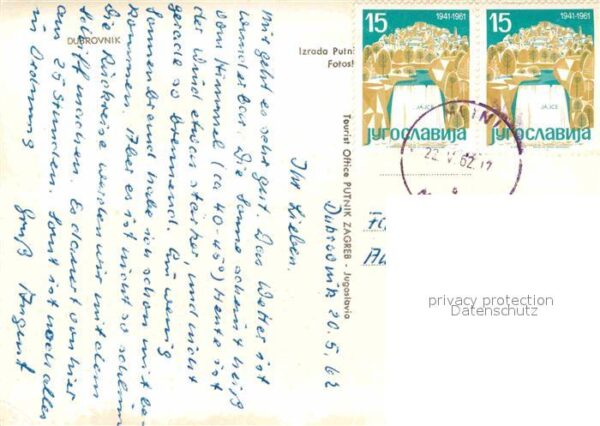 DUBROVNIK
Izrada Putni
Fotos
Tourist Office PUTNIK ZAGREB - Jugoslavia
15
1941-1961
JAJCE
југославија
15
1941-1961
JAJCE
југославија
22. V. 62. 17
Dubrovnik 20. 5. 62
Ihr Lieben.
Mir geht es sehr gut. Das Wetter ist
wunderbar. Die Sonne scheint heiß
vom Himmel (ca 40-45°) Heute ist
der Wind etwas stärker, und nicht
gerade so brennend. Ein wenig
Sonnenbrand habe ich schon mit be-
kommen. Aber es ist nicht so schlimm
Die Rückreise werden wir mit dem
Schiff machen. Es dauert von hier
aus 25 Stunden. Sonst ist noch alles
in Ordnung
Gruß August
privacy protection
Datenschutz